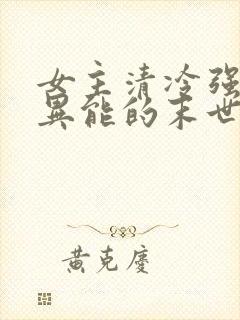 女主清冷强
异能的末世
黄克庆